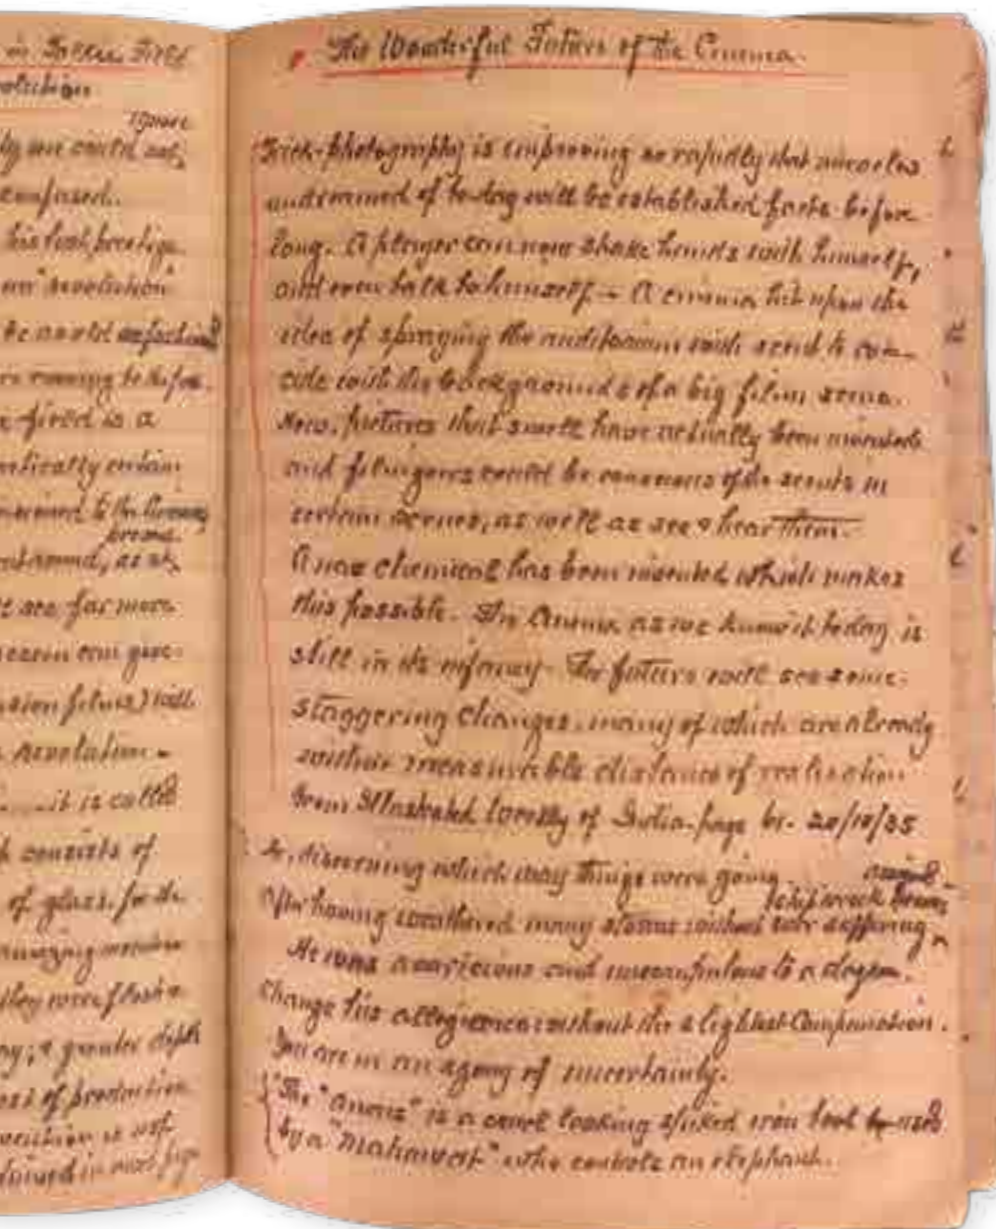 in
olution
more
ly we could not
confused.
his lost prestige
an "revolution"
he could
coming to
fired is a
ntically certain
to the
as
see far more
can give
films) will
revelation -
..... it is called
consists of
of glass, for the
amazing
they were flesh &
& greater depth
cost of production
is not
in next page
The Wonderful Future of the Cinema.
Trick-photography is improving so rapidly that miracles
undreamed of to-day will be established facts before
long. A player can now shake hands with himself,
and even talk to himself - A cinema hit upon the
idea of spraying the auditorium with scent to coin-
cide with the backgrounds of a big film scene.
Now, pictures that smell have actually been invented
and filmgoers could be conscious of the scents in
certain scenes, as well as see & hear them.
A new chemical has been invented which makes
this possible. The Cinema as we know it today is
still in its infancy - The future will see some
staggering changes, many of which are already
within measurable distance of realisation
from Illustrated Weekly of India page 61. 20/10/35
discerning which way things were going
After having weathered many storms without ever suffering
shipwreck
He was avaricious and unscrupulous to a degree.
Change his allegiance without the slightest Compunction.
You are in an agony of uncertainty.
The "Ancus" is a cruel looking spiked iron tool used
by a "Mahawat" who controls an elephant.